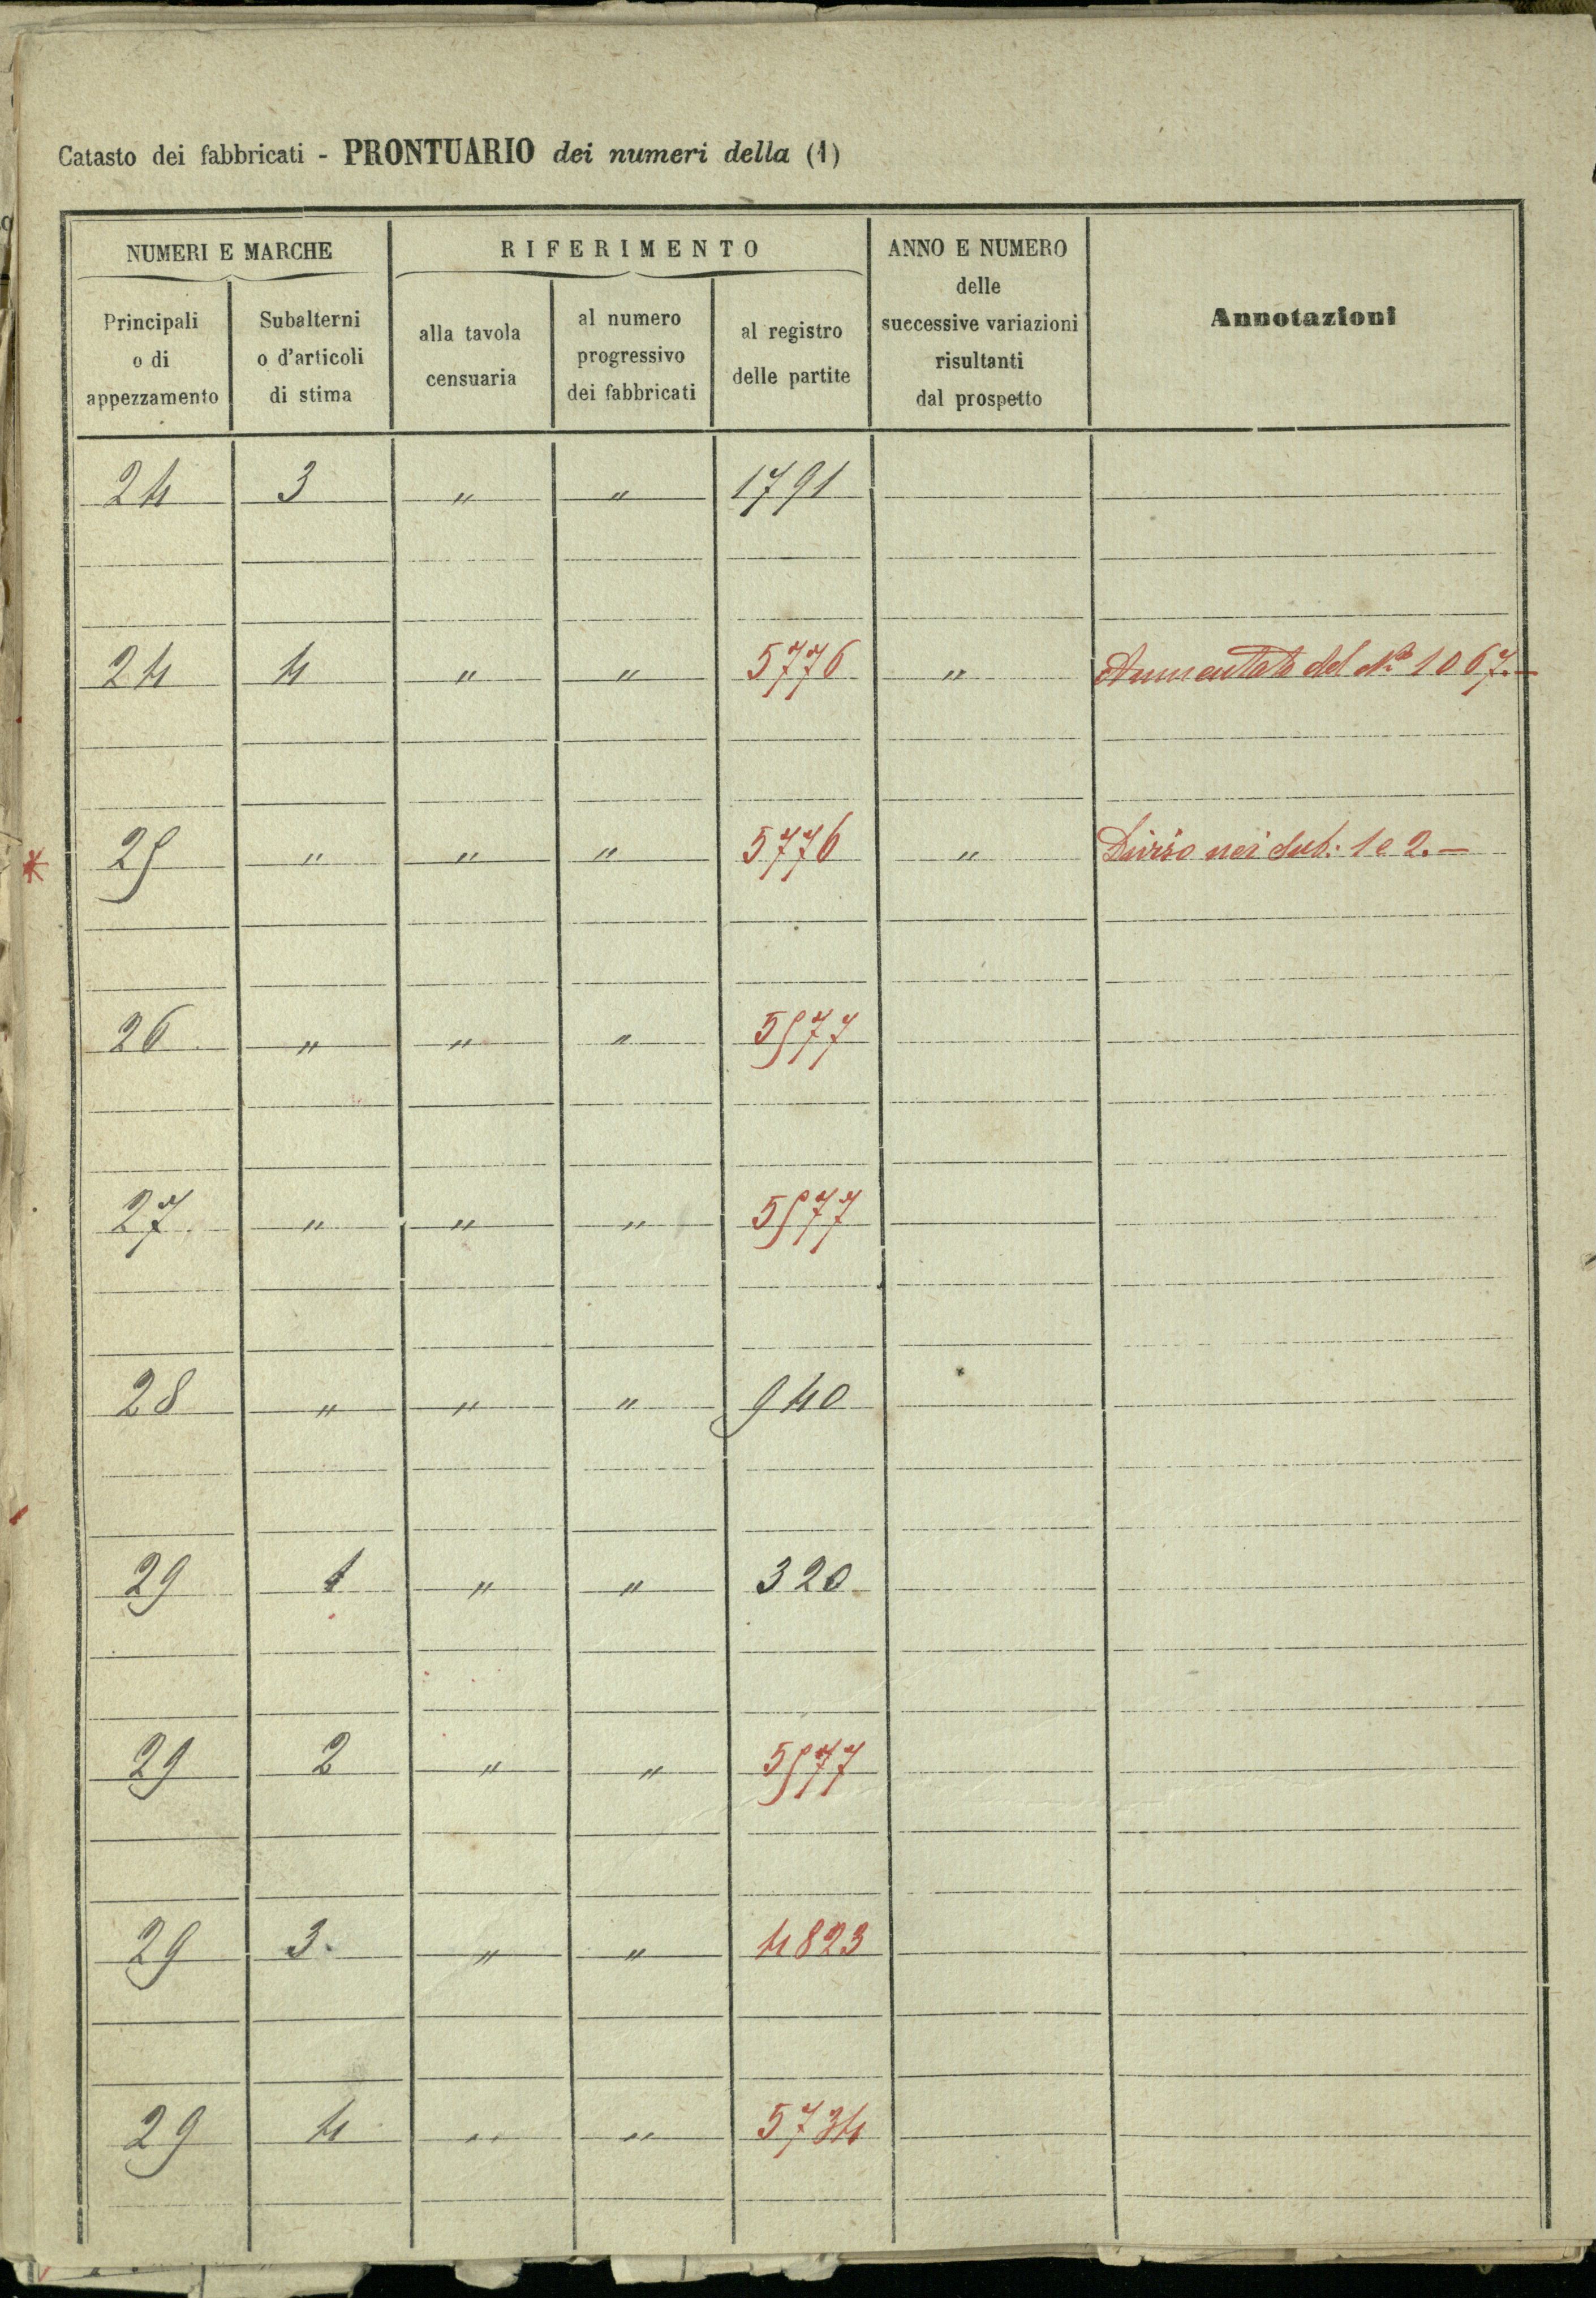 Catasto dei fabbricati - PRONTUARIO dei numeri della (1)
NUMERI E MARCHE
RIFERIMENTO
ANNO E NUMERO
delle
successive variazioni
risultanti
dal prospetto
Annotazioni
Principali
o di
appezzamento
Subalterni
o d'articoli
di stima
alla tavola
censuaria
al numero
progressivo
dei fabbricati
al registro
delle partite
24 3 " " 1791
24 4 " " 5776 " Aumentato del No 1067.—
* 25 " " " 5776 " Diviso nei sub: 1 e 2.—
26 " " " 5577
27 " " " 5577
28 " " " 940
29 1 " " 320
29 2 " " 5577
29 3. " " 4823
29 4 " " 5734